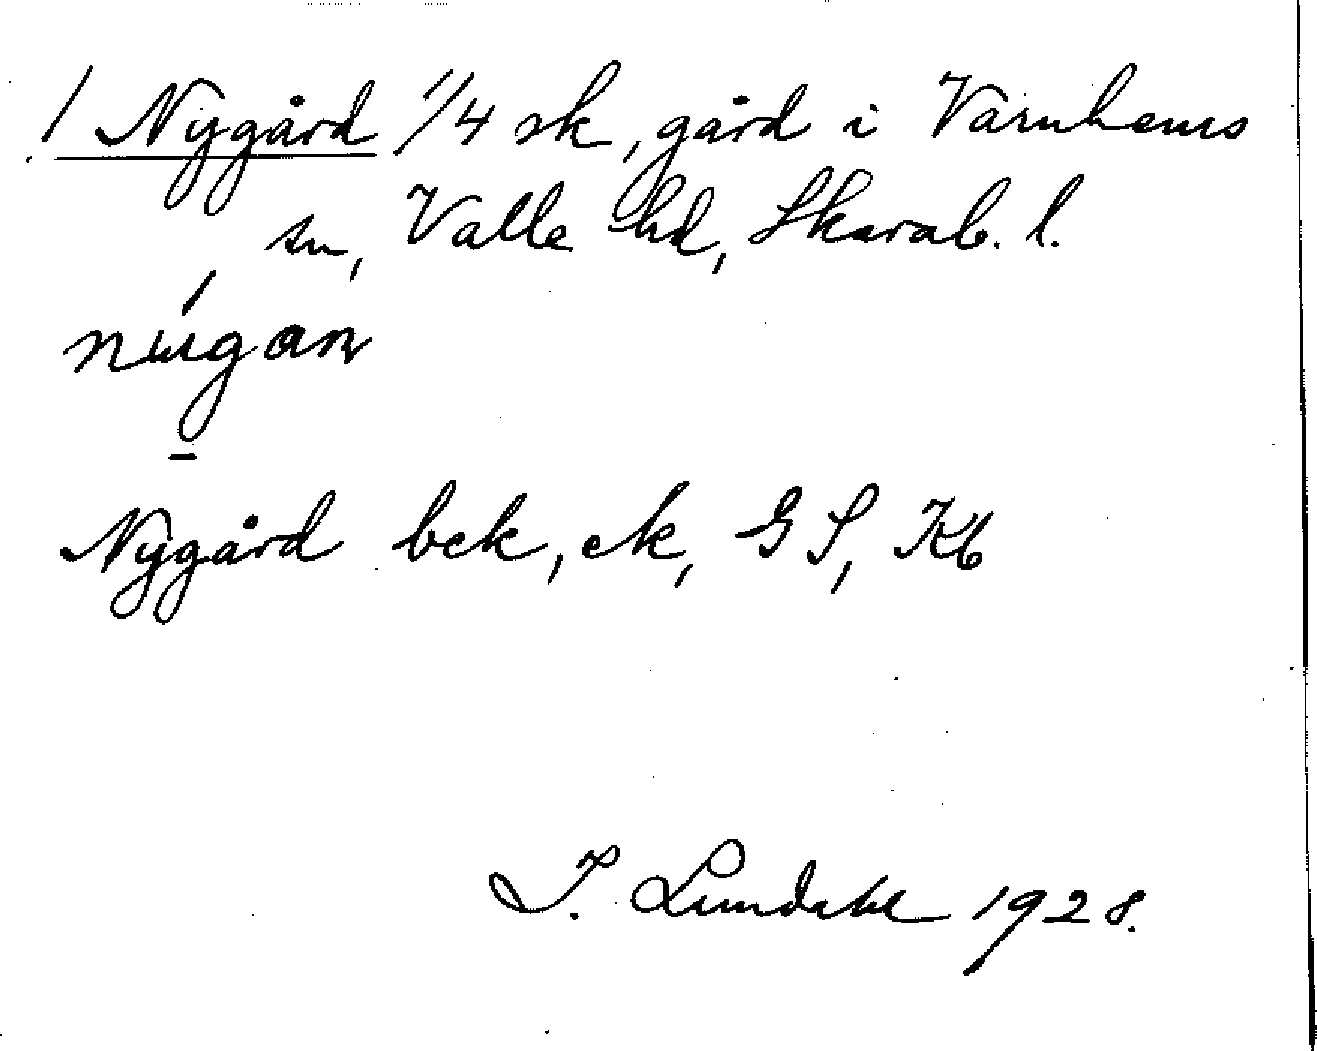 / Nygård 1/4 sk, gård i Varnhems
sn, Valle hd, Skarab. l.
Nygård bek, ek, GS, Kb
I. Lundahl 1928.